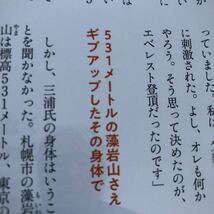 っていました。私は、
に刺激された。よし、オレも何か
やろう。そう思って決めたのが、
エベレスト登頂だったのです」
531メートルの藻岩山さえ
ギブアップしたその身体で
しかし、三浦氏の身体はいうこ
とを聞かなかった。札幌市の藻岩
山は標高531メートル、東京の